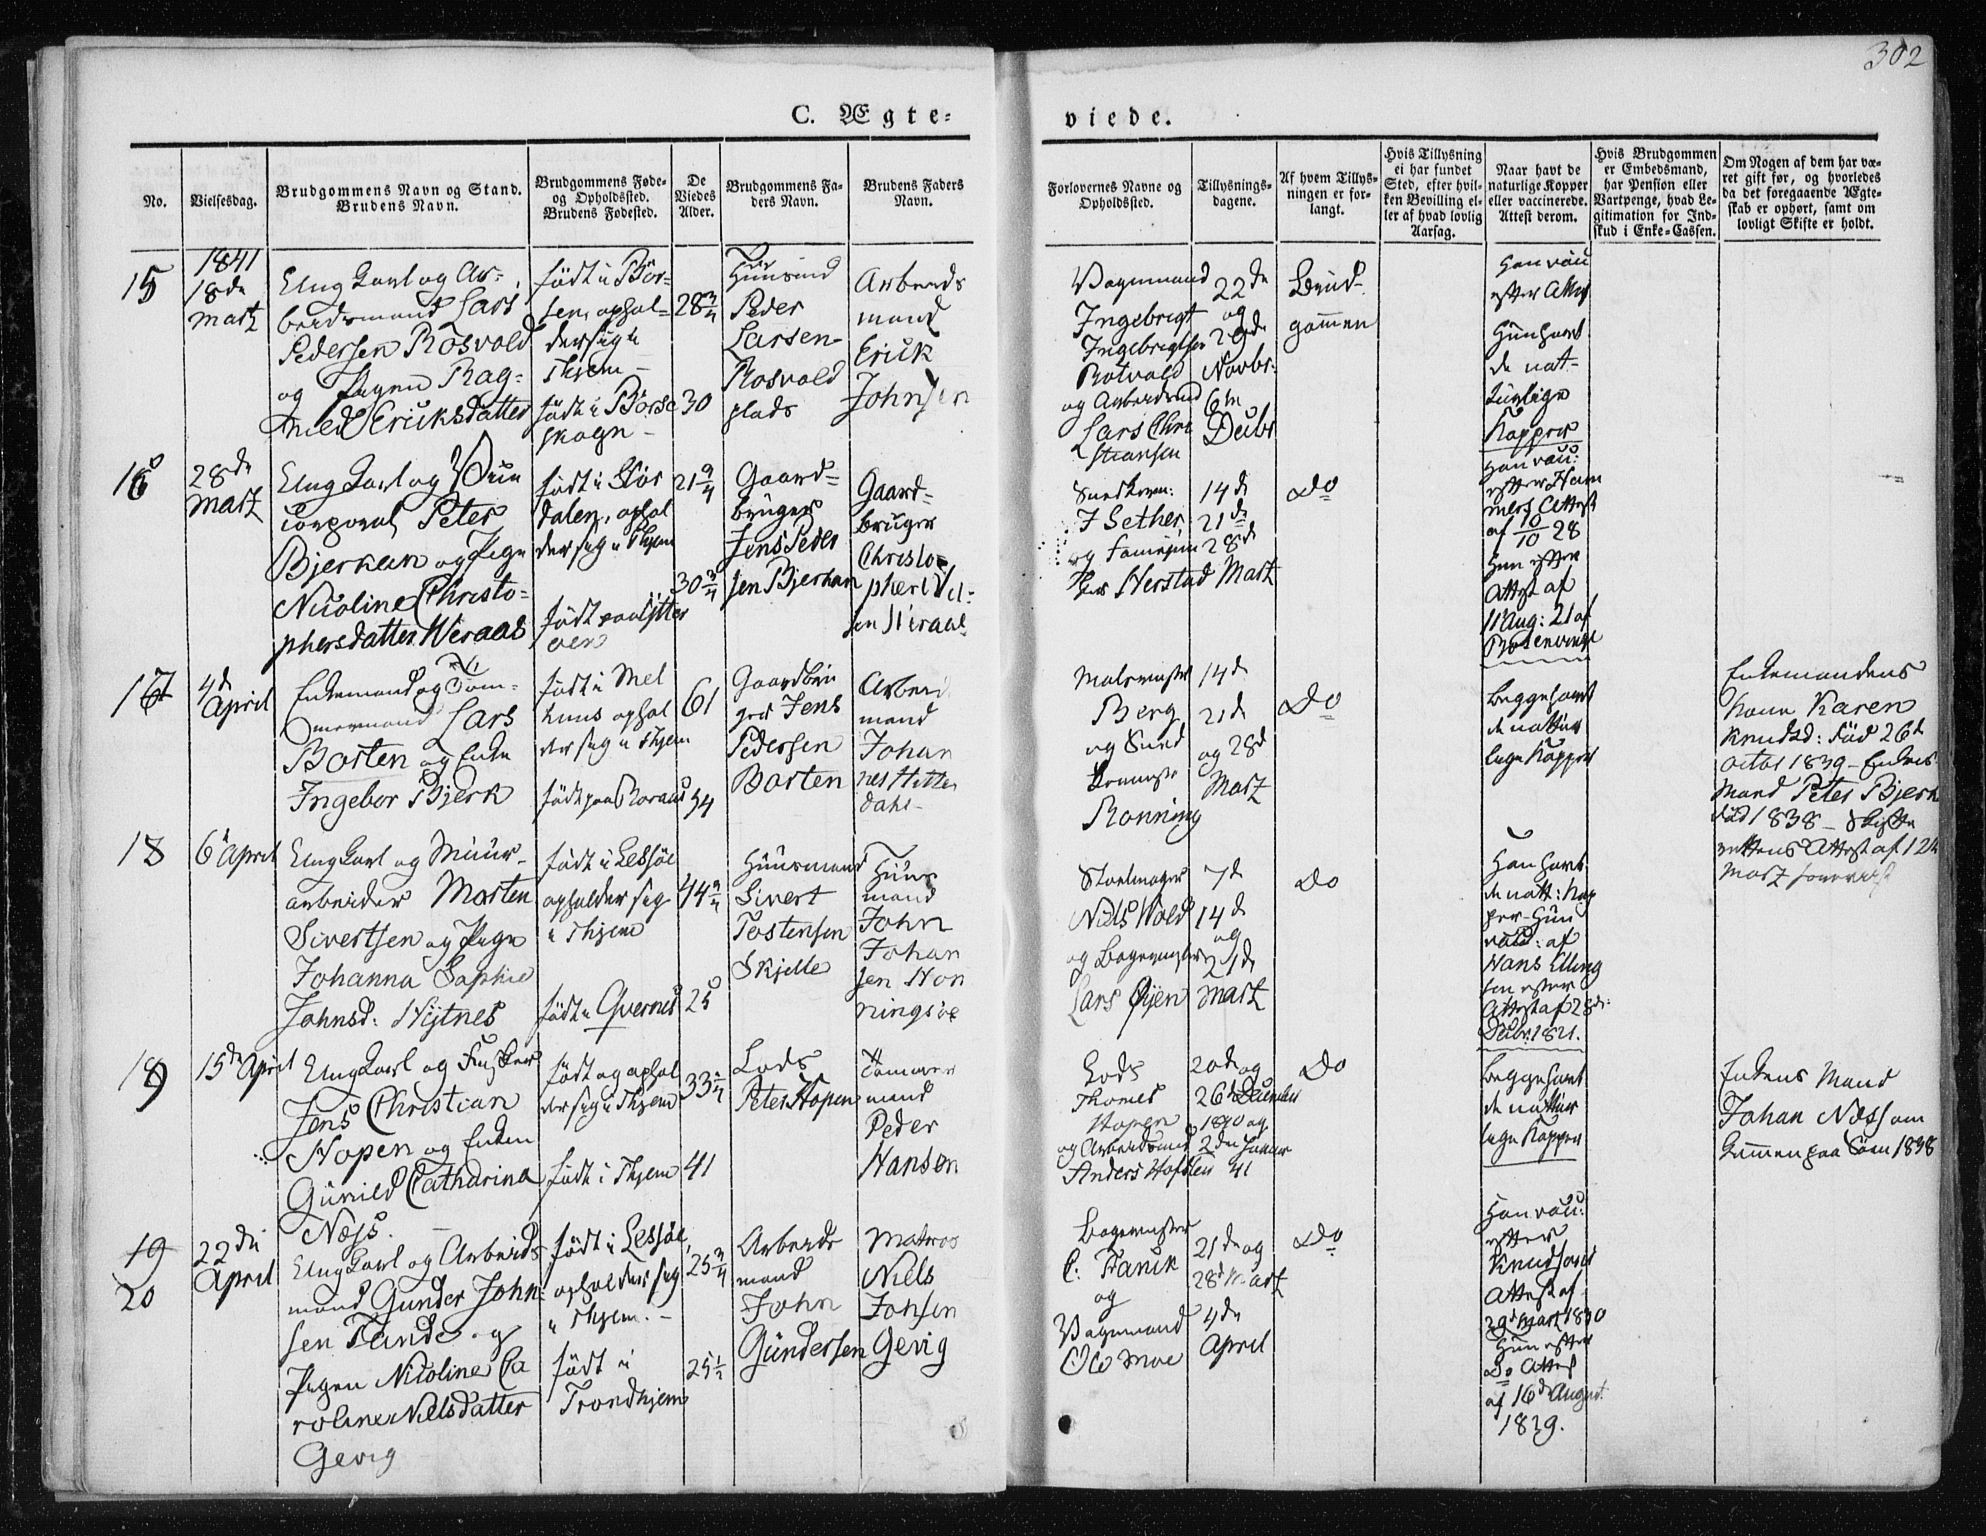 302
C. Ægte-
viede.
No.
Vielsesdag.
Brudgommens Navn og Stand.
Brudens Navn.
Brudgommens Føde-
og Opholdssted.
Brudens Fødested.
De
Viedes
Alder.
Brudgommens Fa-
ders Navn.
Brudens Faders
Navn.
Forlovernes Navne og
Opholdssted.
Tillysnings-
dagene.
Af hvem Tillys-
ningen er for-
langt.
Hvis Tillysning
ei har fundet
Sted, efter hvil-
ken Bevilling el-
ler af hvad lovlig
Aarsag.
Naar havt de
naturlige Kopper
eller vaccinerede.
Attest derom.
Hvis Brudgommen
er Embedsmand,
har Pension eller
Vartpenge, hvad Le-
gitimation for Ind-
skud i Enke-Cassen.
Om Nogen af dem har væ-
ret gift før, og hvorledes
da det foregaaende Ægte-
skab er ophørt, samt om
lovligt Skifte er holdt.
15
1841
18de
Martz
Ung Karl og Ar-
beidsmand Lars
Pedersen Rosvold
og Pigen Rag-
nild Eriksdatter
født i Bør-
sen, ophol-
der sig i
Thjem
født i Børse
skogn
28 3/4
30
Huusmd
Peder
Larsen
Rosvold
plads
Arbeids
mand
Erick
Johnsen
Vognmand
Ingebrigt
Ingebrigtsen
Rotvold
og Arbeidsmd
Lars Chri
stiansen
22de
og
29de
Novbr
6te
Decbr
Brud-
gommen
Han vac
efter Attest
Hun havt
de nat-
turlige
Kopper
16
28de
Martz
Ung Karl og
corporal Peter
Bjerkan og Pige
Nicoline Christo-
phersdatter Weraas
født i Stør
dalen, ophol
der sig i Thjem
født paa Ytter
øen
21 9/4
30 3/4
Gaard-
bruger
Jens Peder
sen Bjerkan
Gaard-
bruger
Christo-
pher
J Sether
Herstad
14de
21de
28de
Martz
Do
Han vac:
efter Ham
mers Attest
af 10/10 28
Hun efter
Attest af
11 Aug: 21 af
Rosenvinge
17
4de
April
Enkemand og Tøm-
mermand Lars
Borten og Enke
Ingebor Bjerk
født i Mel
huus ophol
der sig i Thjem
født paa Roraas
61
54
Gaardbru
ger Jens
Pedersen
Borten
Arbeid
mand
Johan
nes Hitter
dahl
Malermester
Berg
og
Ronning
14de
21de
og 28de
Martz
Do
Begge havt
de nattur
lige Kopper
Enkemandens
Kone Karen
Knudsd: død 26de
Octbr 1839 - Enkens
Mand Peter Bjerk
død 1838 - Skifte
rettens Attest af 12te
Martz forevist
18
6te April
Ung Karl og Muur-
arbeider Morten
Sivertsen og Pige
Johanna Sophie
Johnsd: Hitnes
født i Lessøe
opholder sig
i Thjem
født i Qvernes
44 3/4
25
Huusmand
Sivert
Tostensen
Skjelle
Huus
mand
John
Johan
sen Hon
ningsøe
Stoelmager
Niels Wold
og Bagermester
Lars Øyen
7de
14de
og
21de
Martz
Do
Han havt
de natt: Kop
per - Hun
vacc: af
Hans Elling
sen efter
Attest af 28de
Decbr: 1821.
19
15de April
Ung Karl og Fusker
Jens Christian
Hopen og Enken
Gunild Catharina
Næss.
født og ophol
der sig i Thjem
født i Thjem
33 1/4
41
Lods
Peter Hopen
Tømmer
mand
Peder
Hansen
Lods
Thomes
Hopen
og Arbeidsmand
Anders Hofsten
20de og
26de December
1840 og
2den Januar
41
Do
Begge havt
de nattur
lige Kopper
Enkens Mand
Johan Næss om
kommen paa Søen 1838
19
20
22de
April
Ung Karl og Arbeids
mand Gunder John-
sen Tande og
Pigen Nicoline Ca
roline Nielsdatter
Gevig
født i Lessøe,
opholder sig
i Thjem.
født i
Trondhjem
25 3/4
25 1/2
Arbeids
mand
John
Gundersen
Matros
Niels
Johsen
Gevig
Bagermester
C: Fanik
og
Vognmand
Ole Moe
21de og
28de Martz
4de
April
Do
Han vacc:
efter
Knudsons
Attest af
29de Mart 1830
Hun efter
Do Attest
af 16de August
1829.